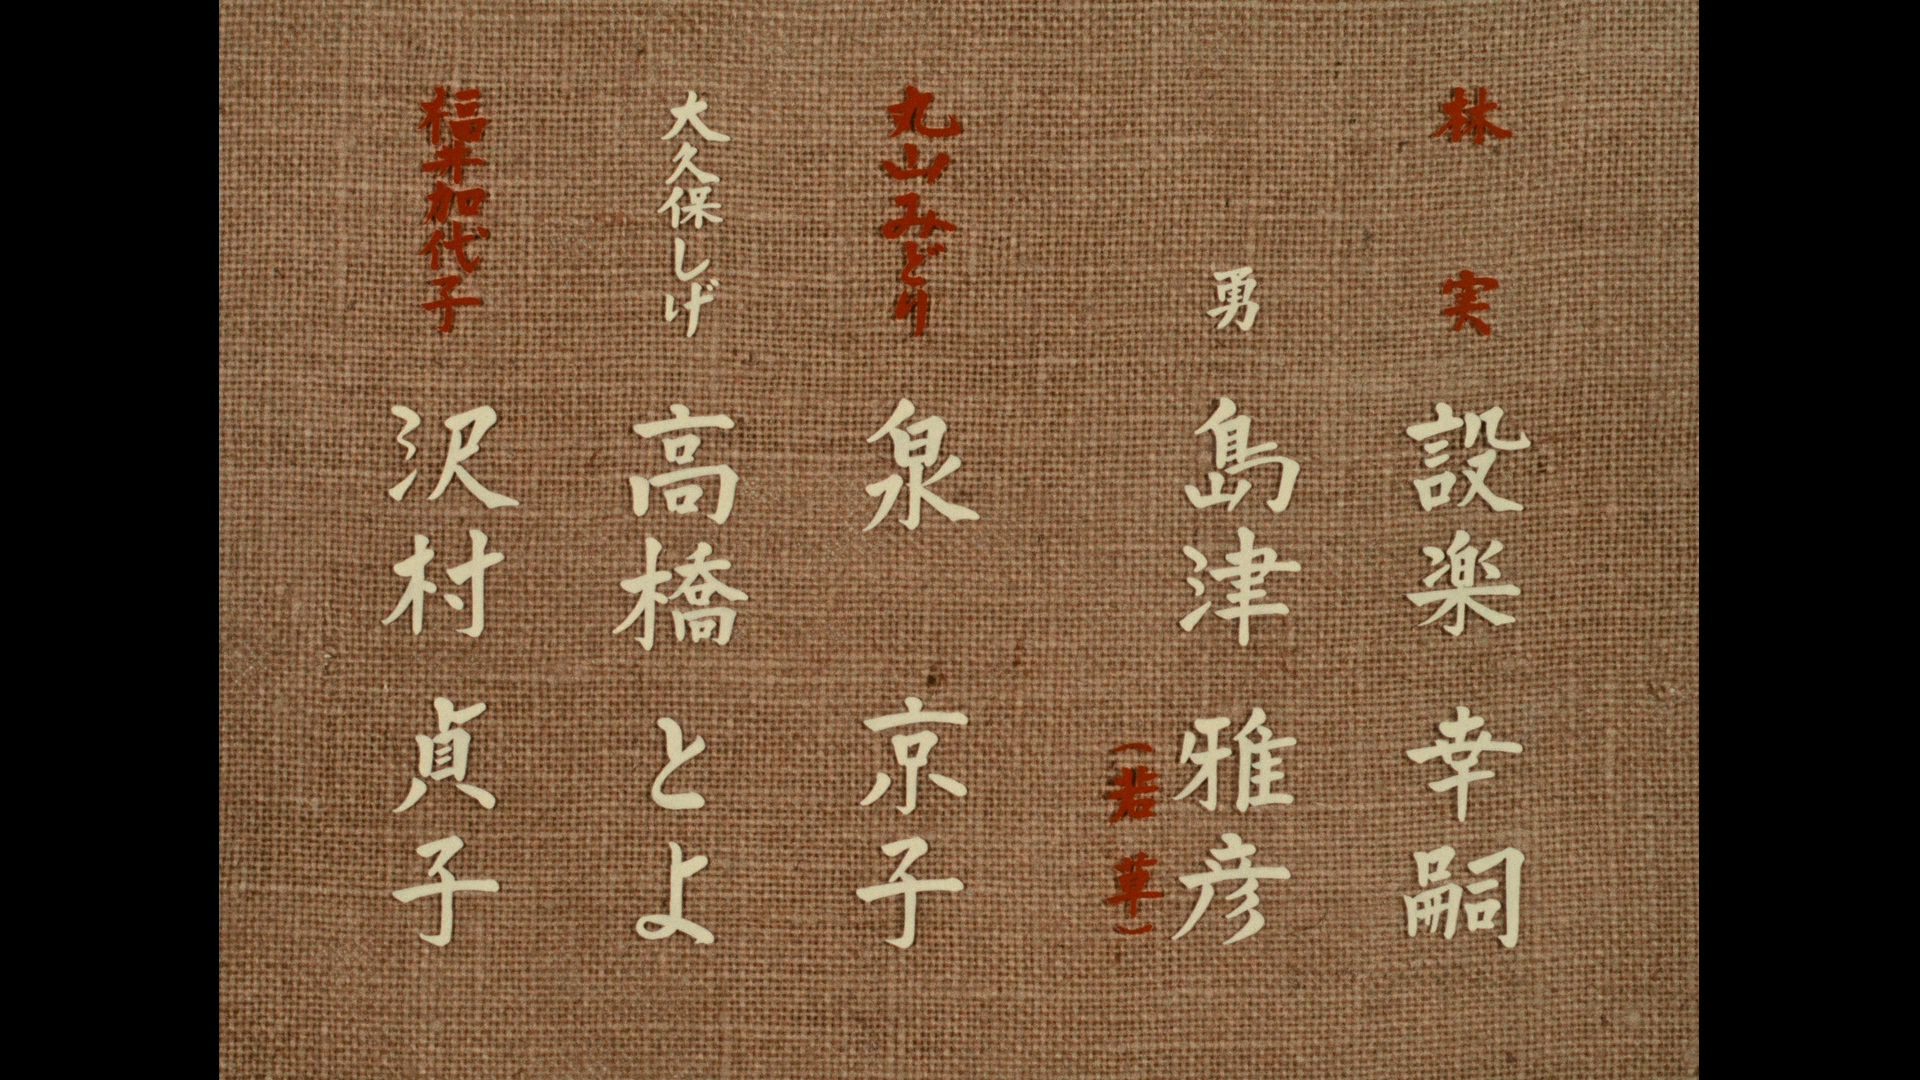 林 実
設楽 幸嗣
勇
島津 雅彦
(若草)
丸山みどり
泉 京子
大久保しげ
高橋 とよ
福井加代子
沢村 貞子